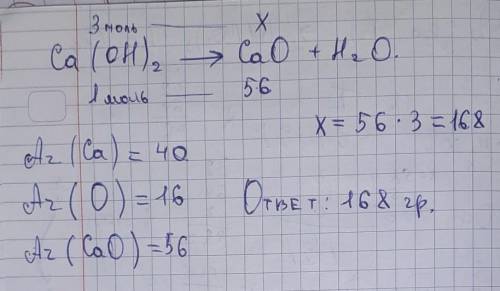 3 моль — X
Ca(OH)₂ → CaO + H₂O.
1 моль — 56
X = 56 · 3 = 168
Ar(Ca) = 40
Ar(O) = 16
Ответ: 168 гр.
Ar(CaO) = 56